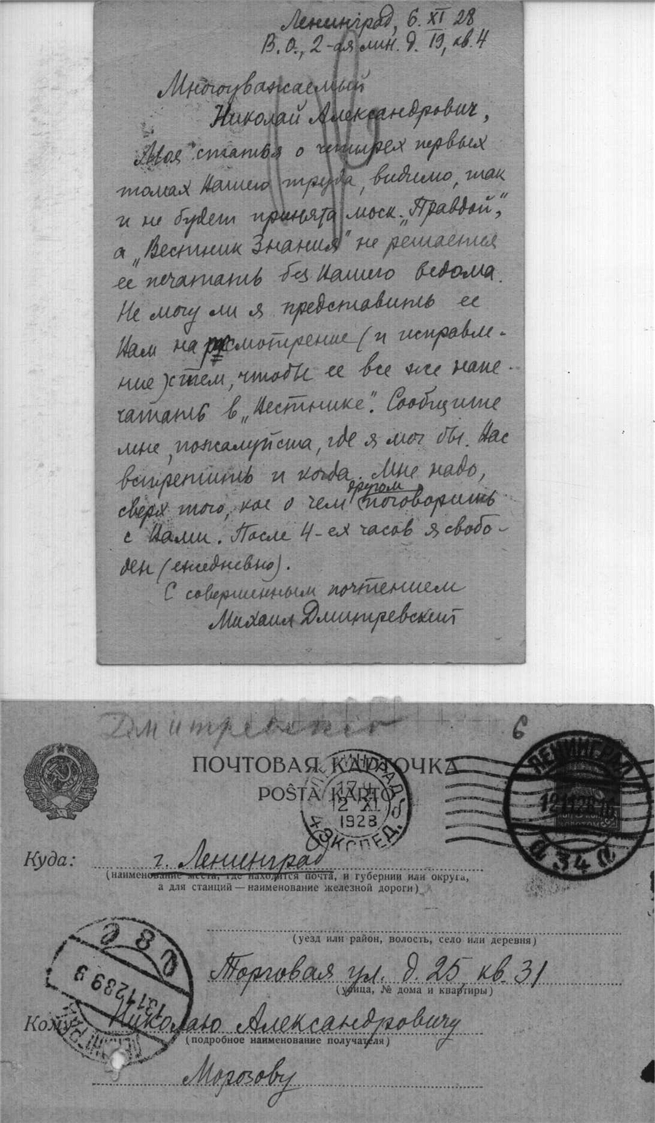 Ленинград, 6. XI 28
В.О., 2-ая лин. д. 19, кв. 4
Многоуважаемый
Николай Александрович,
Моя статья о четырех первых
томах Вашего труда, видимо, так
и не будет принята моск. „Правдой“,
а „Вестник Знания“ не решается
ее печатать без Вашего ведома.
Не могу ли я представить ее
Вам на рассмотрение (и исправле-
ние) с тем, чтобы ее все же напе-
чатать в „Вестнике“. Сообщите
мне, пожалуйста, где я мог бы Вас
встретить и когда. Мне надо,
сверх того, кое о чем другом поговорить
с Вами. После 4-ех часов я свобо-
ден (ежедневно).
С совершенным почтением
Михаил Дмитревский
Дмитревского
6
ПОЧТОВАЯ КАРТОЧКА
POŜTA KARTO
ЛЕНИНГРАД
12 XI
1928
4 ЭКСПЕД.
ЛЕНИНГРАД
12.11.28
а 34 а
Куда: г. Ленинград
(наименование места, где находится почта, и губернии или округа,
а для станций—наименование железной дороги)
(уезд или район, волость, село или деревня)
Торговая ул. д. 25, кв. 31
(улица, № дома и квартиры)
Кому: Николаю Александровичу
(подробное наименование получателя)
Морозову
ЛЕНИНГРАД